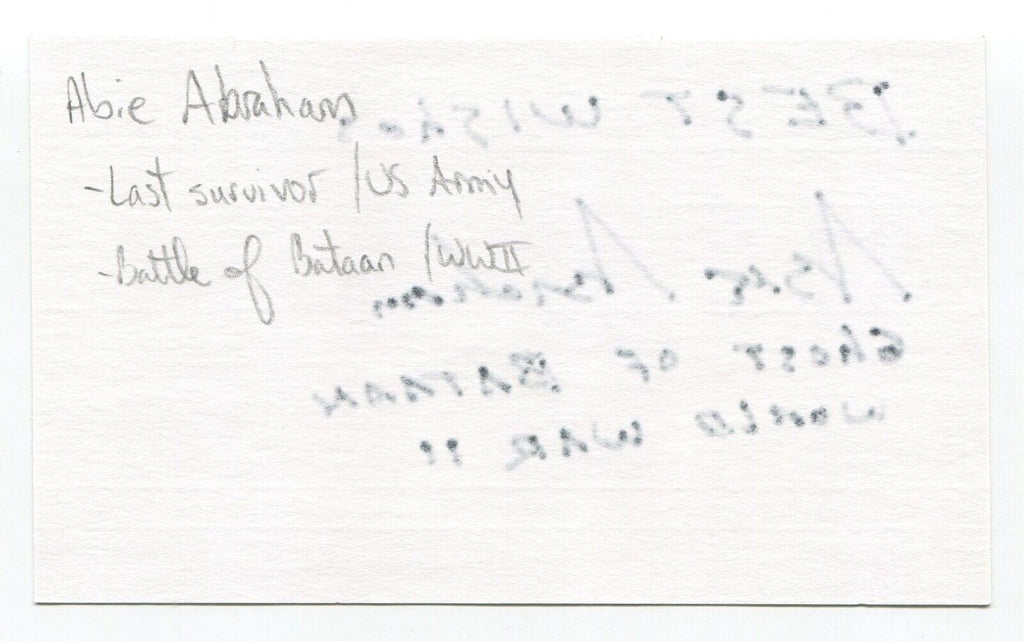 Abie Abraham
-Last survivor / US Army
-Battle of Bataan / WWII
BEST WISHES
Abie Abraham
GHOST OF BATAAN
WORLD WAR II